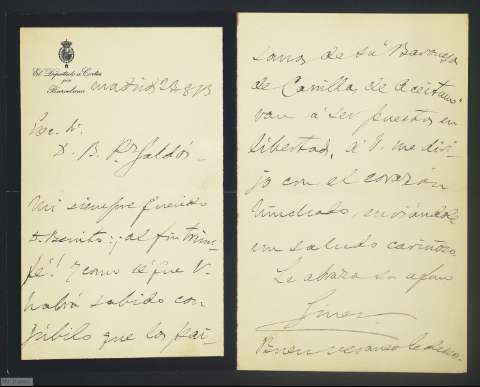 El Diputado a Cortes
por
Barcelona
Madrid
Exc. Sr.
D. B. Pz. Galdós
Mi siempre querido
D. Benito: ¡al fin triun-
fé! Y como sé que V.
habrá sabido con
júbilo que los pai-
sanos de su Baronesa
de Canilla de Aceituno
van a ser puestos en
libertad, á V. me diri-
jo con el corazón
hinchado, enviándole
un saludo cariñoso.
Le abraza su afmo
Buen veraneo le deseo.